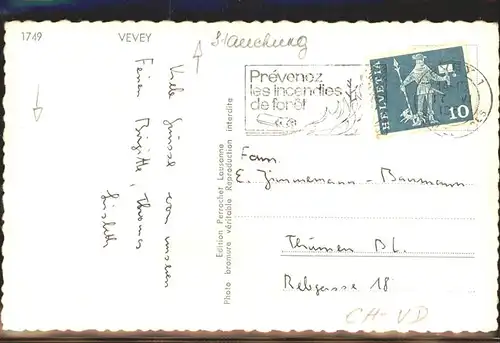 1749 VEVEY
Stauchung
Prévenez
les incendies
de forêt
HELVETIA
10
Viele Grüsse von unseren
Ferien Brigitte, Thomas
Lislott
Edition Perrochet Lausanne
Photo bromure véritable Reproduction interdite
Fam.
E. Zimmermann - Baumann
Thürnen BL.
Rebgasse 18
CH-VD